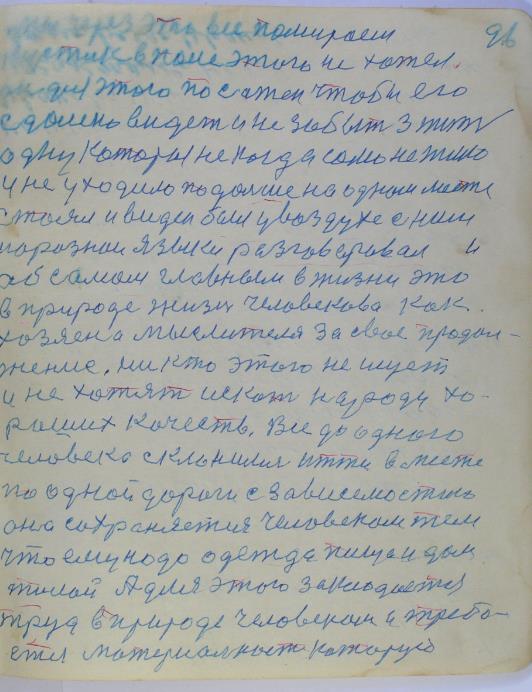 96
через это все помираем
так в поле этого не хотел.
этого послател чтобы его
сдолено видет и не забыт
одну которы некогда само не жило
и не уходило подолше на одном месте
стоял и видел бели у воздухе с ним
поразном языки разговаровал и
об самом главным в жизни это
в природе жизн человекова как
хозяена мыслителя за свое продол-
жение. ни кто этого не ищет
и не хотят искат народу хо-
роших качеств. Все до одного
человека склонилис итти в месте
по одной дороги с зависемостию
она сохраняется человеком тем
что ему надо одежда пища и дом
жилой А для этого закладается
труд в природе человеком и требо-
ется материалност которую